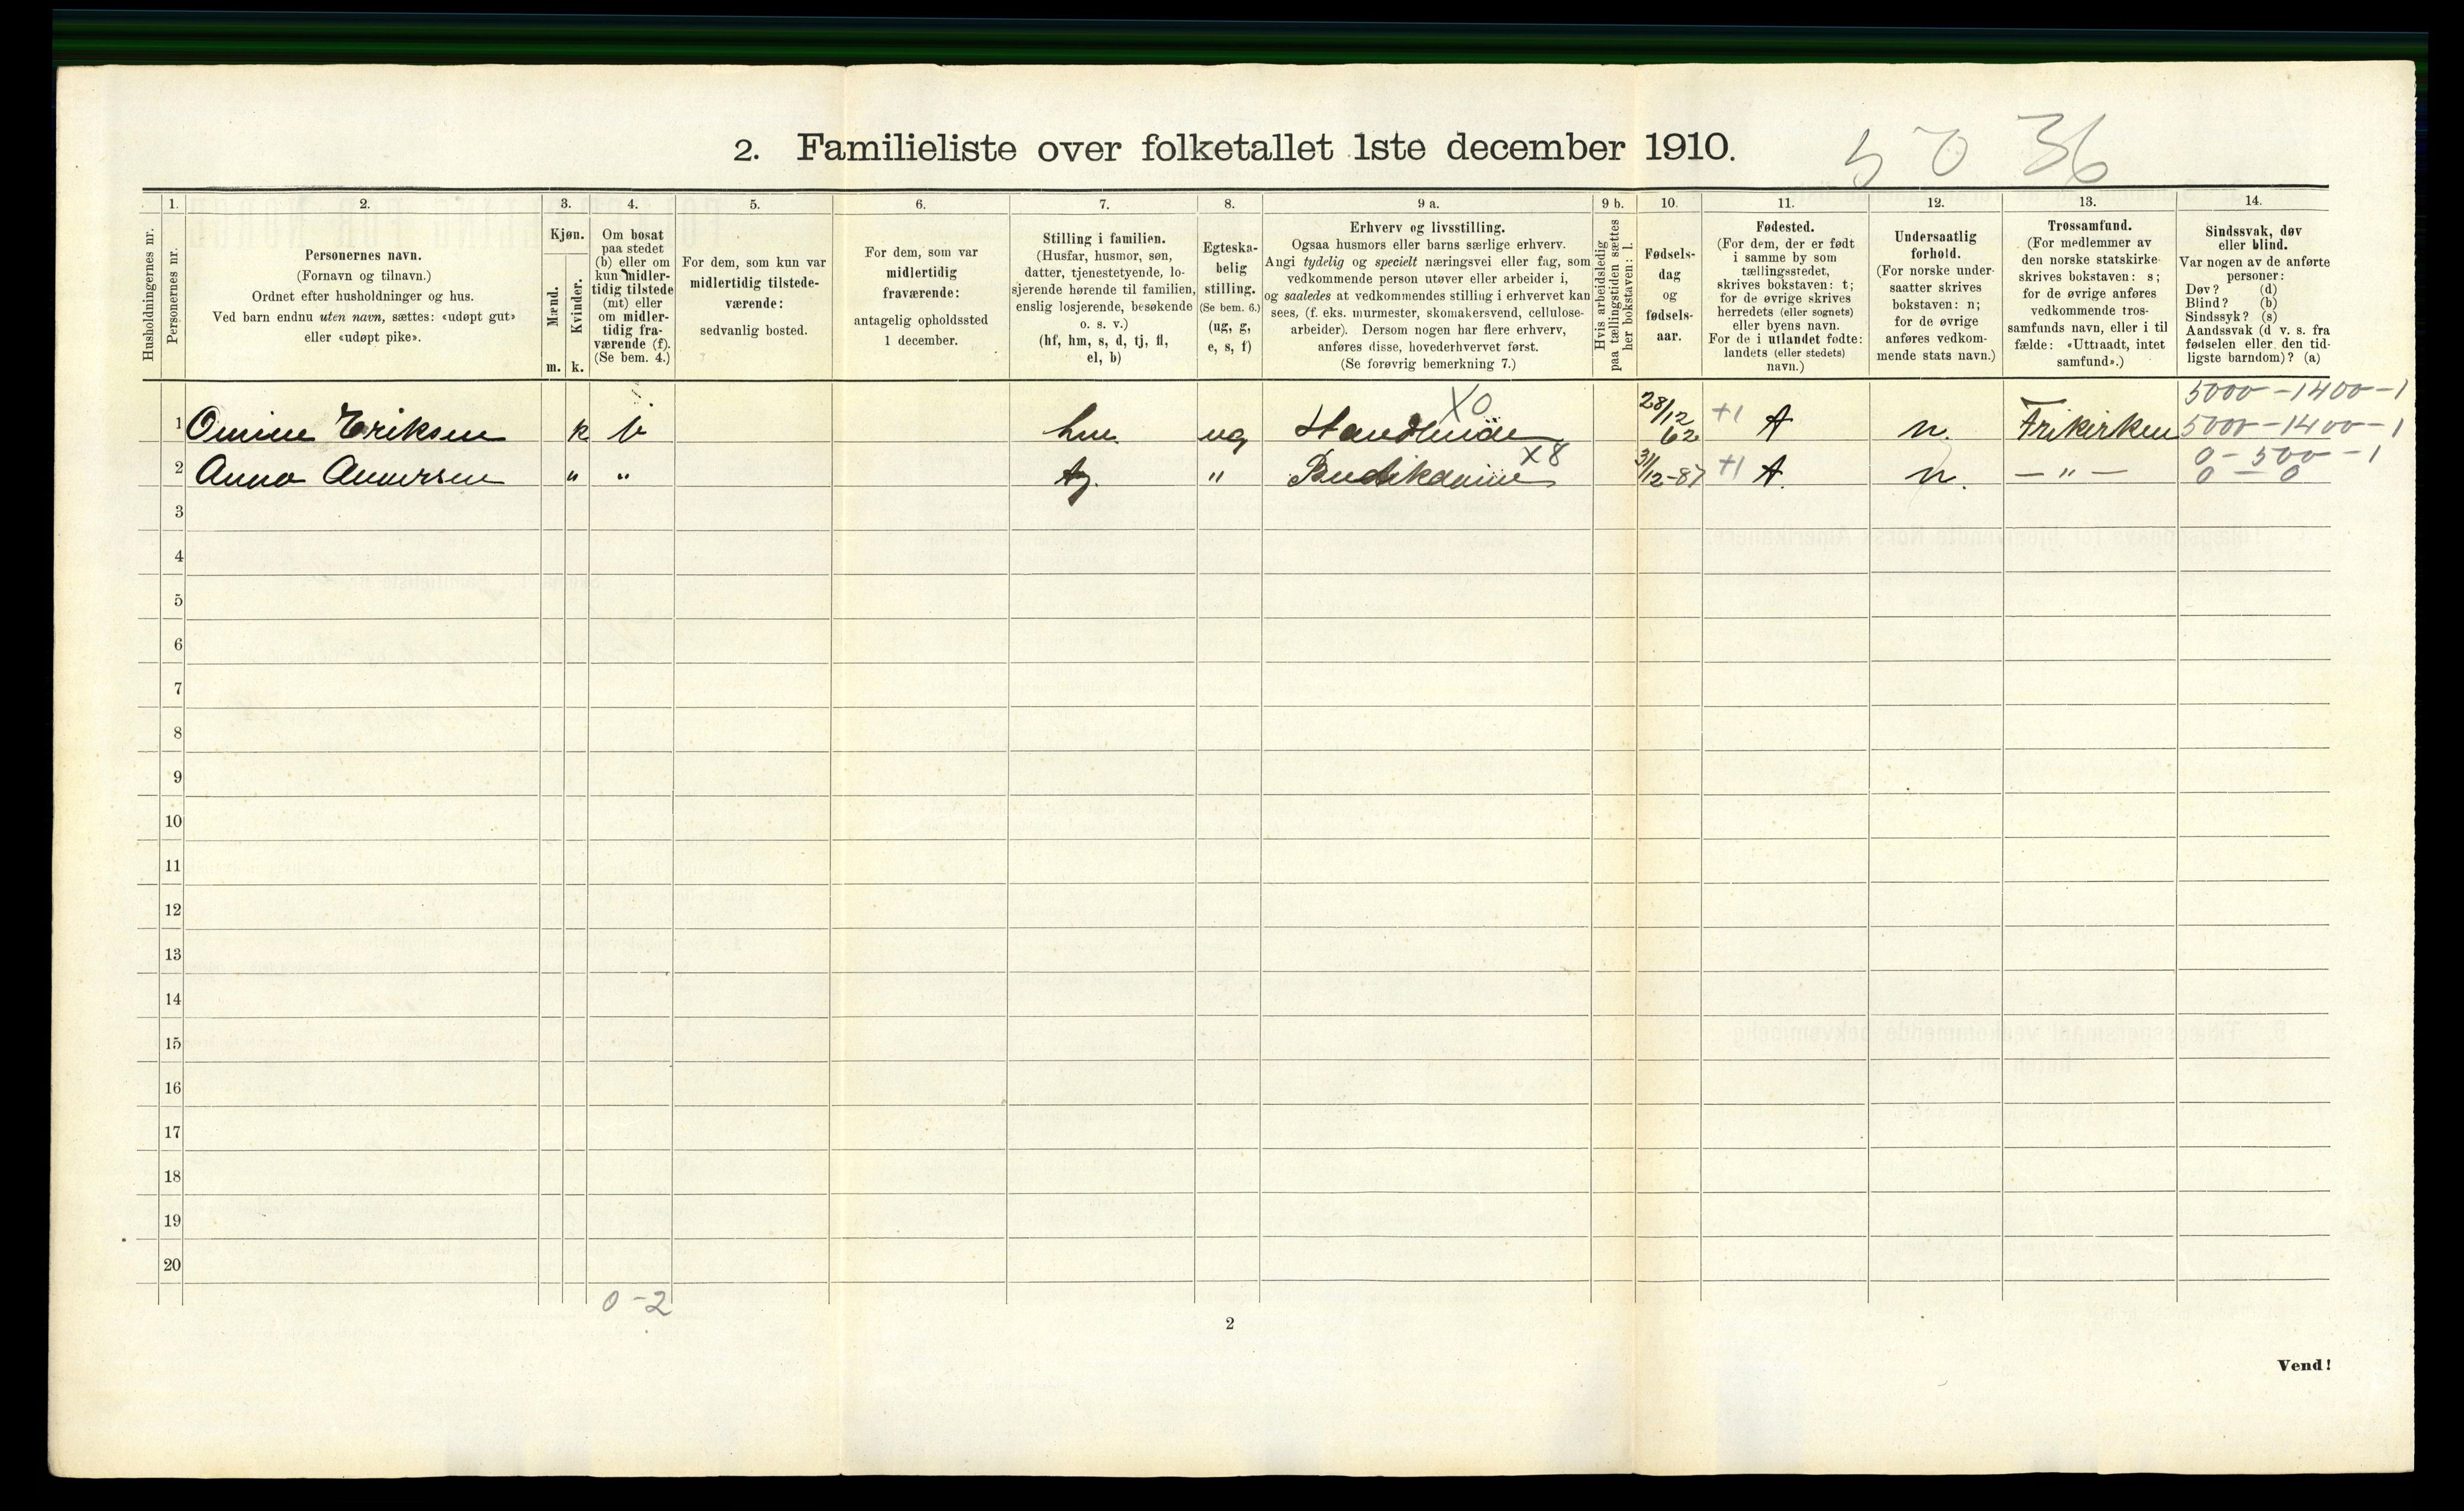 2. Familieliste over folketallet 1ste december 1910.
5 0 36
Husholdningernes nr.
1.
Personernes nr.
2.
Personernes navn.
(Fornavn og tilnavn.)
Ordnet efter husholdninger og hus.
Ved barn endnu uten navn, sættes: «udøpt gut»
eller «udøpt pike».
3.
Kjøn.
Mænd.
Kvinder.
m. k.
4.
Om bosat
paa stedet
(b) eller om
kun midler-
tidig tilstede
(mt) eller
om midler-
tidig fra-
værende (f).
(Se bem. 4.)
5.
For dem, som kun var
midlertidig tilstede-
værende:
sedvanlig bosted.
6.
For dem, som var
midlertidig
fraværende:
antagelig opholdssted
1 december.
7.
Stilling i familien.
(Husfar, husmor, søn,
datter, tjenestetyende, lo-
sjerende hørende til familien,
enslig losjerende, besøkende
o. s. v.)
(hf, hm, s, d, tj, fl,
el, b)
8.
Egteska-
belig
stilling.
(Se bem. 6.)
(ug, g,
e, s, f)
9 a.
Erhverv og livsstilling.
Ogsaa husmors eller barns særlige erhverv.
Angi tydelig og specielt næringsvei eller fag, som
vedkommende person utøver eller arbeider i,
og saaledes at vedkommendes stilling i erhvervet kan
sees, (f. eks. murmester, skomakersvend, cellulose-
arbeider). Dersom nogen har flere erhverv,
anføres disse, hovederhvervet først.
(Se forøvrig bemerkning 7.)
9 b.
Hvis arbeidsledig
paa tællingstiden sættes
her bokstaven: l.
10.
Fødsels-
dag
og
fødsels-
aar.
11.
Fødested.
(For dem, der er født
i samme by som
tællingsstedet,
skrives bokstaven: t;
for de øvrige skrives
herredets (eller sognets)
eller byens navn.
For de i utlandet fødte:
landets (eller stedets)
navn.)
12.
Undersaatlig
forhold.
(For norske under-
saatter skrives
bokstaven: n;
for de øvrige
anføres vedkom-
mende stats navn.)
13.
Trossamfund.
(For medlemmer av
den norske statskirke
skrives bokstaven: s;
for de øvrige anføres
vedkommende tros-
samfunds navn, eller i til
fælde: «Uttraadt, intet
samfund».)
14.
Sindssvak, døv
eller blind.
Var nogen av de anførte
personer:
Døv? (d)
Blind? (b)
Sindssyk? (s)
Aandssvak (d v. s. fra
fødselen eller den tid-
ligste barndom)? (a)
X0 5000-1400-1
1 Eriksen k b hm. ug 28/12 62 +1 t n. Frikirken 5000-1400-1
X8 0-500-1
2 Anna " " tj. " 31/12-87 +1 t. n. — " — 0 — 0
3
4
5
6
7
8
9
10
11
12
13
14
15
16
17
18
19
20
0-2
2
Vend!